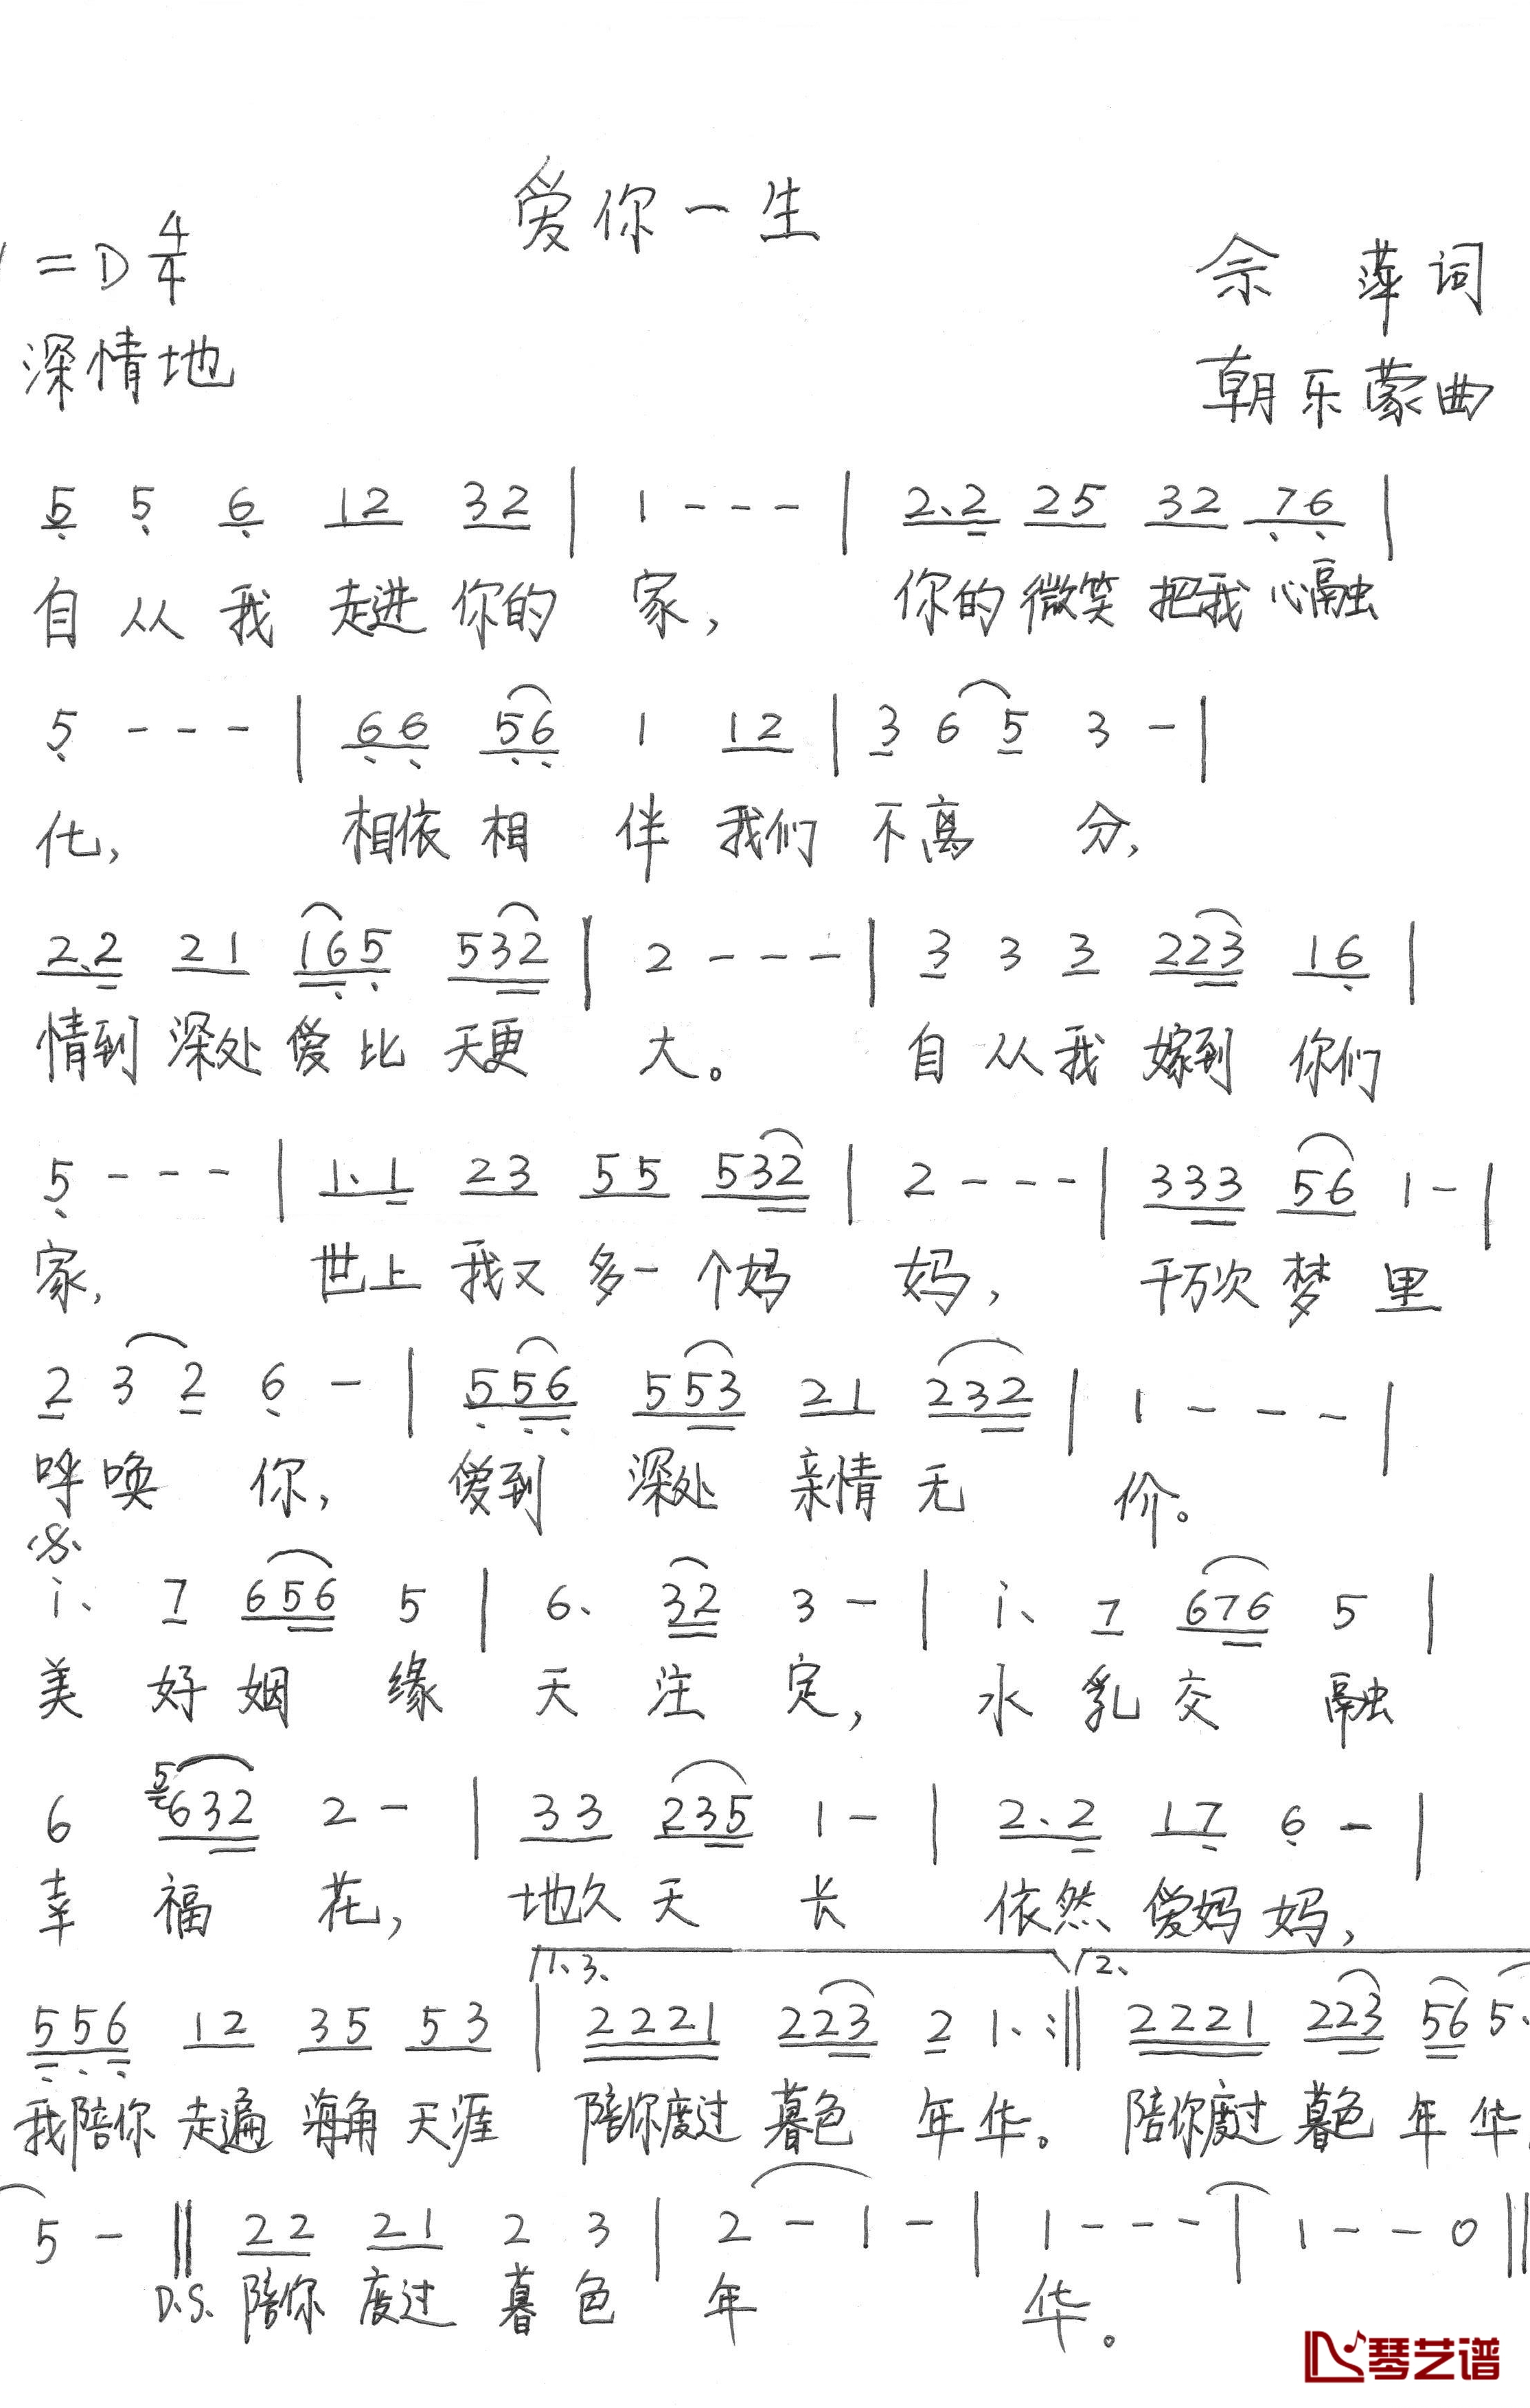 爱你一生
1=D 4/4
佘 萍词
深情地
朝乐蒙曲
5 5 6 12 32 | 1 - - - | 2.2 25 32 76 |
自从我 走进 你的 家, 你的 微笑 把我 心融
5 - - - | 66 56 1 12 | 3 6 5 3 - |
化, 相依 相 伴 我们 不离 分,
2.2 21 165 532 | 2 - - - | 3 3 3 223 16 |
情到 深处 爱比 天更 大。 自从我 嫁到 你们
5 - - - | 1.1 23 55 532 | 2 - - - | 333 56 1 - |
家, 世上 我又 多一 个妈 妈, 千万次 梦 里
2 3 2 6 - | 556 553 21 232 | 1 - - - |
呼唤 你, 爱到 深处 亲情 无 价。
i. 7 656 5 | 6. 32 3 - | i. 7 676 5 |
美 好 姻 缘 天 注 定, 水 乳 交 融
6 5 632 2 - | 33 235 1 - | 2.2 17 6 - |
幸 福 花, 地久 天 长 依然 爱妈 妈,
1. 3. 2.
556 12 35 53 | 2221 223 2 1. :|| 2221 223 56 5.
我陪你 走遍 海角 天涯 陪你度过 暮色 年 华。 陪你度过 暮色 年 华
5 - || 22 21 2 3 | 2 - 1 - | 1 - - - | 1 - - 0 ||
D.S. 陪你 度过 暮 色 年 华。
琴艺谱